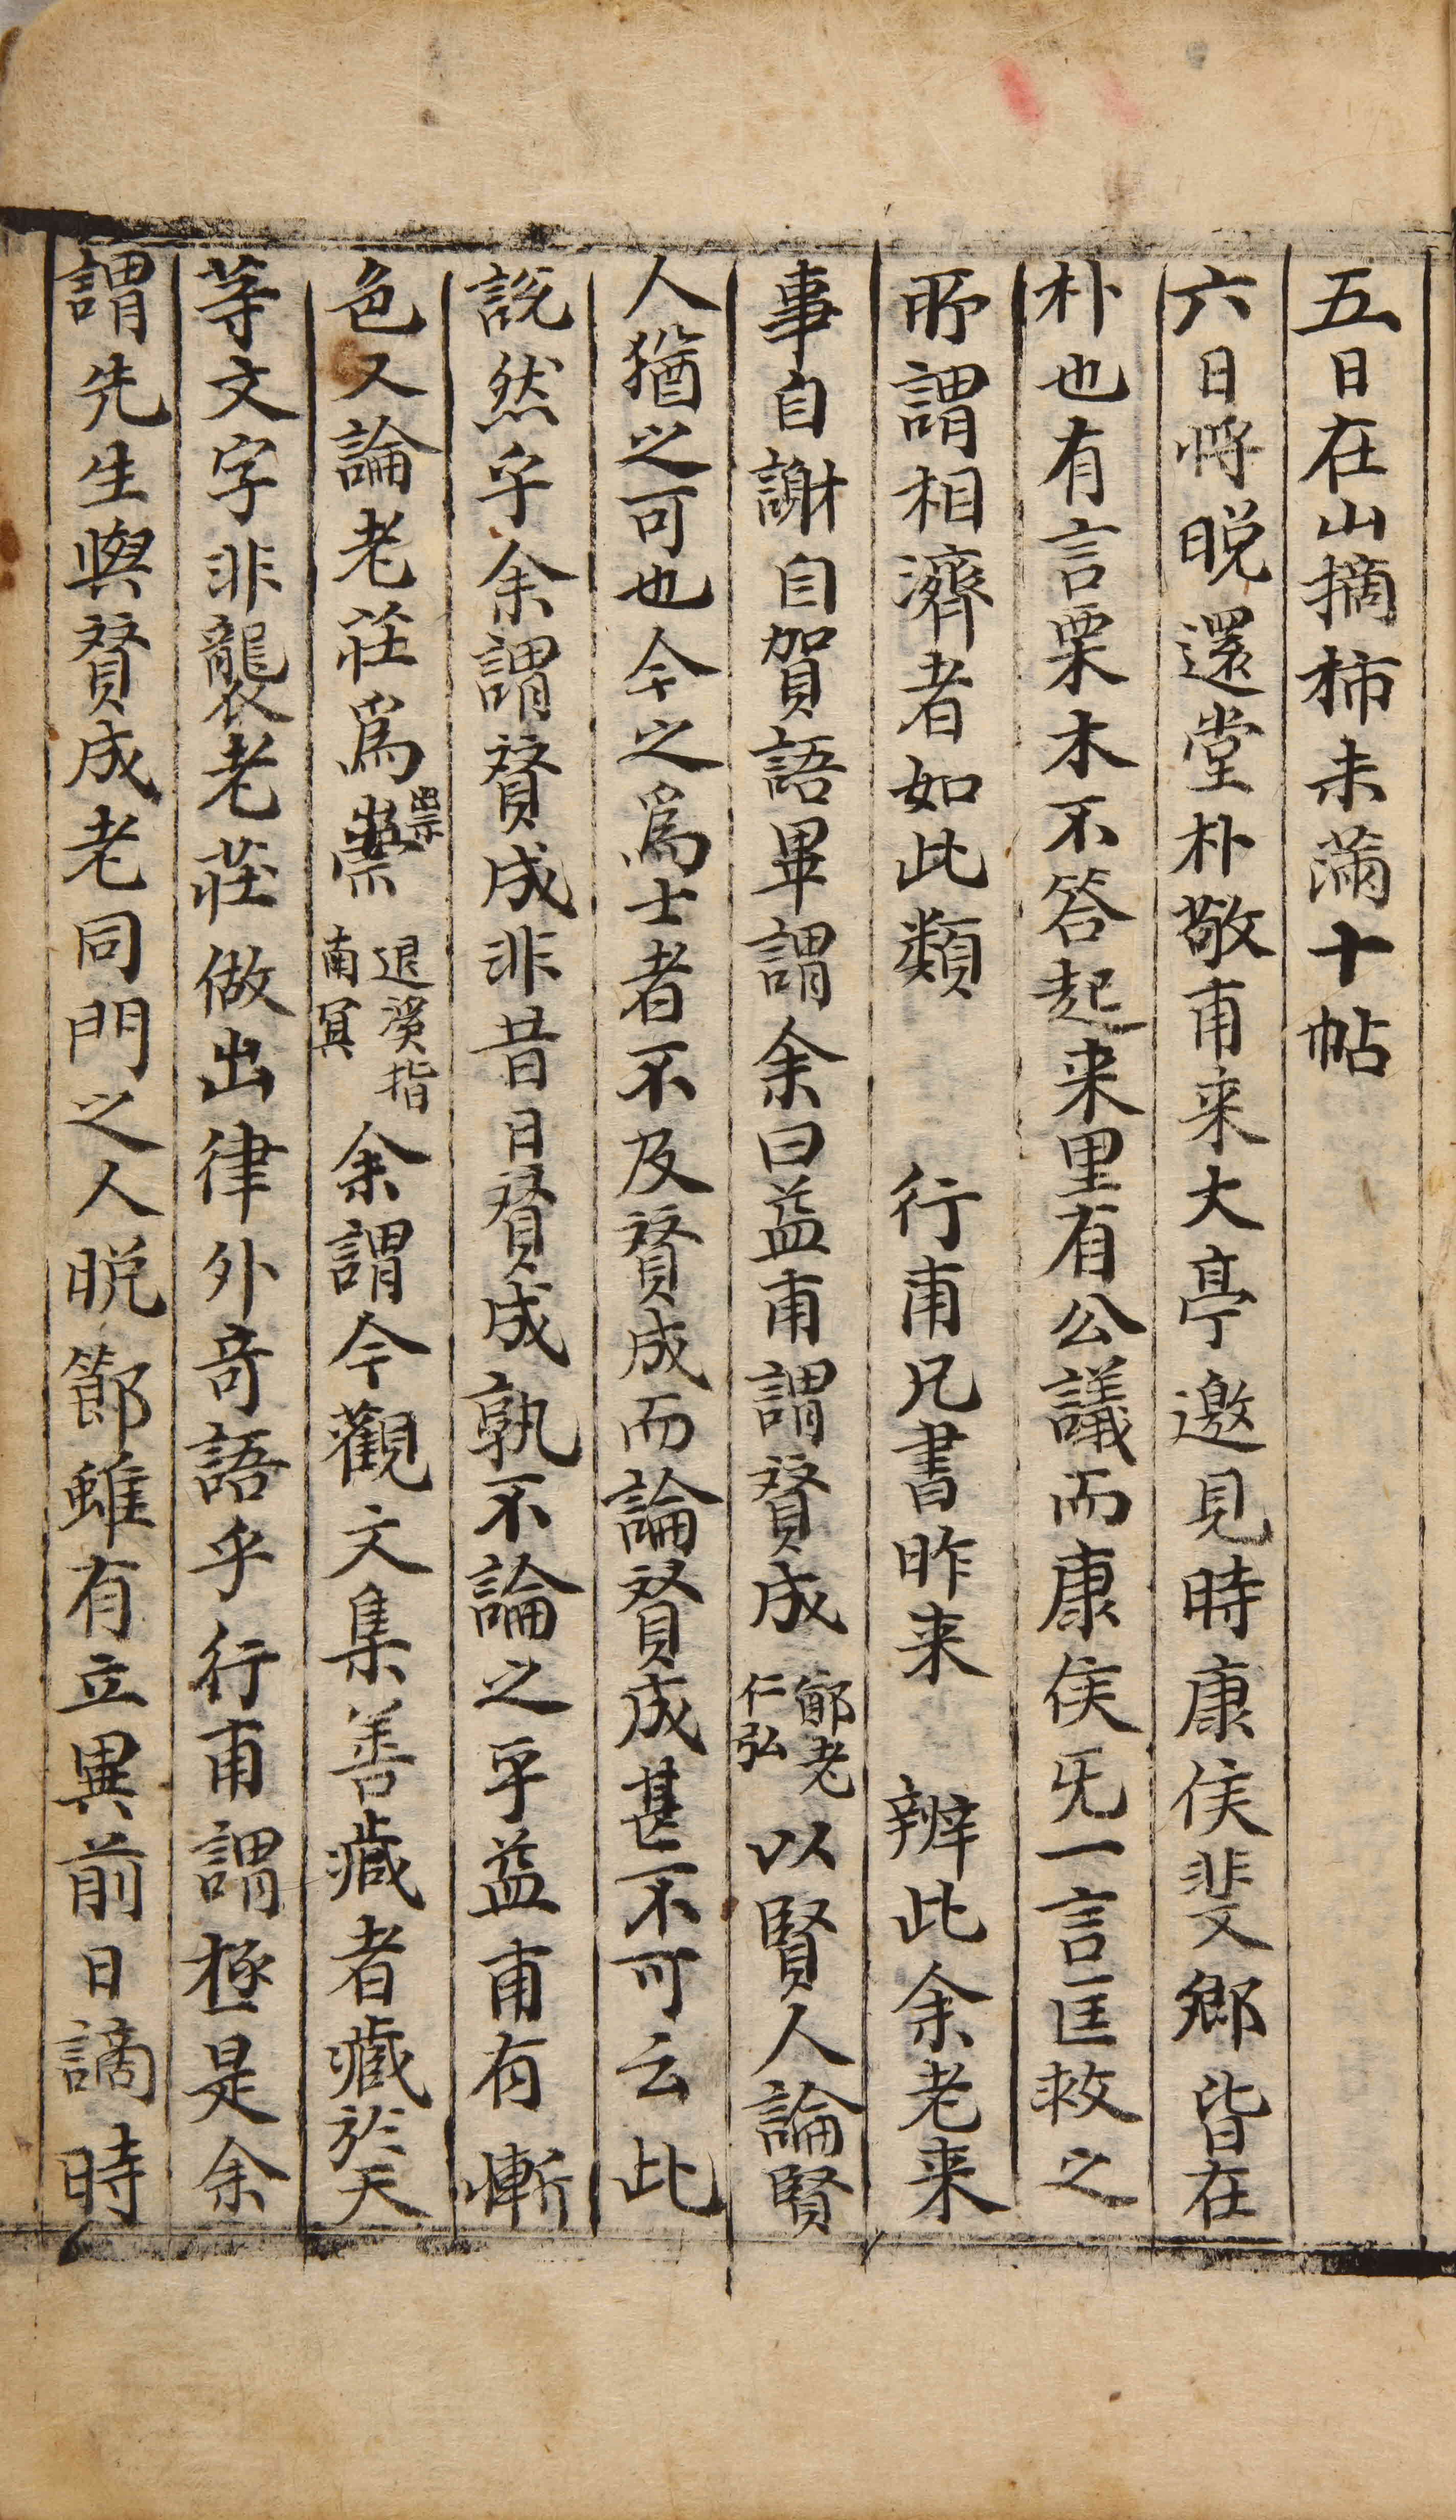 五日在山摘柿未滿十帖
六日將晩還堂朴敬甫来大亭邀見時康侯斐郷皆在
朴也有言栗木不答起来里有公議而康侯旡一言匡救之
所謂相濟者如此類 行甫凡書昨来 辨此余老来
事自謝自賀語畢謂余曰益甫謂賛成鄭老仁弘以賢人論賢
人猶之可也今之爲士者不及賛成而論賛成甚不可云此
説然乎余謂賛成非昔日賛成孰不論之乎益甫有慚
色又論老莊爲祟退溪指南冥余謂今觀文集善藏者藏於天
等文字非襲老莊做出律外奇語乎行甫謂極是余
謂先生與賛成老同門之人晩節雖有立異前日謫時